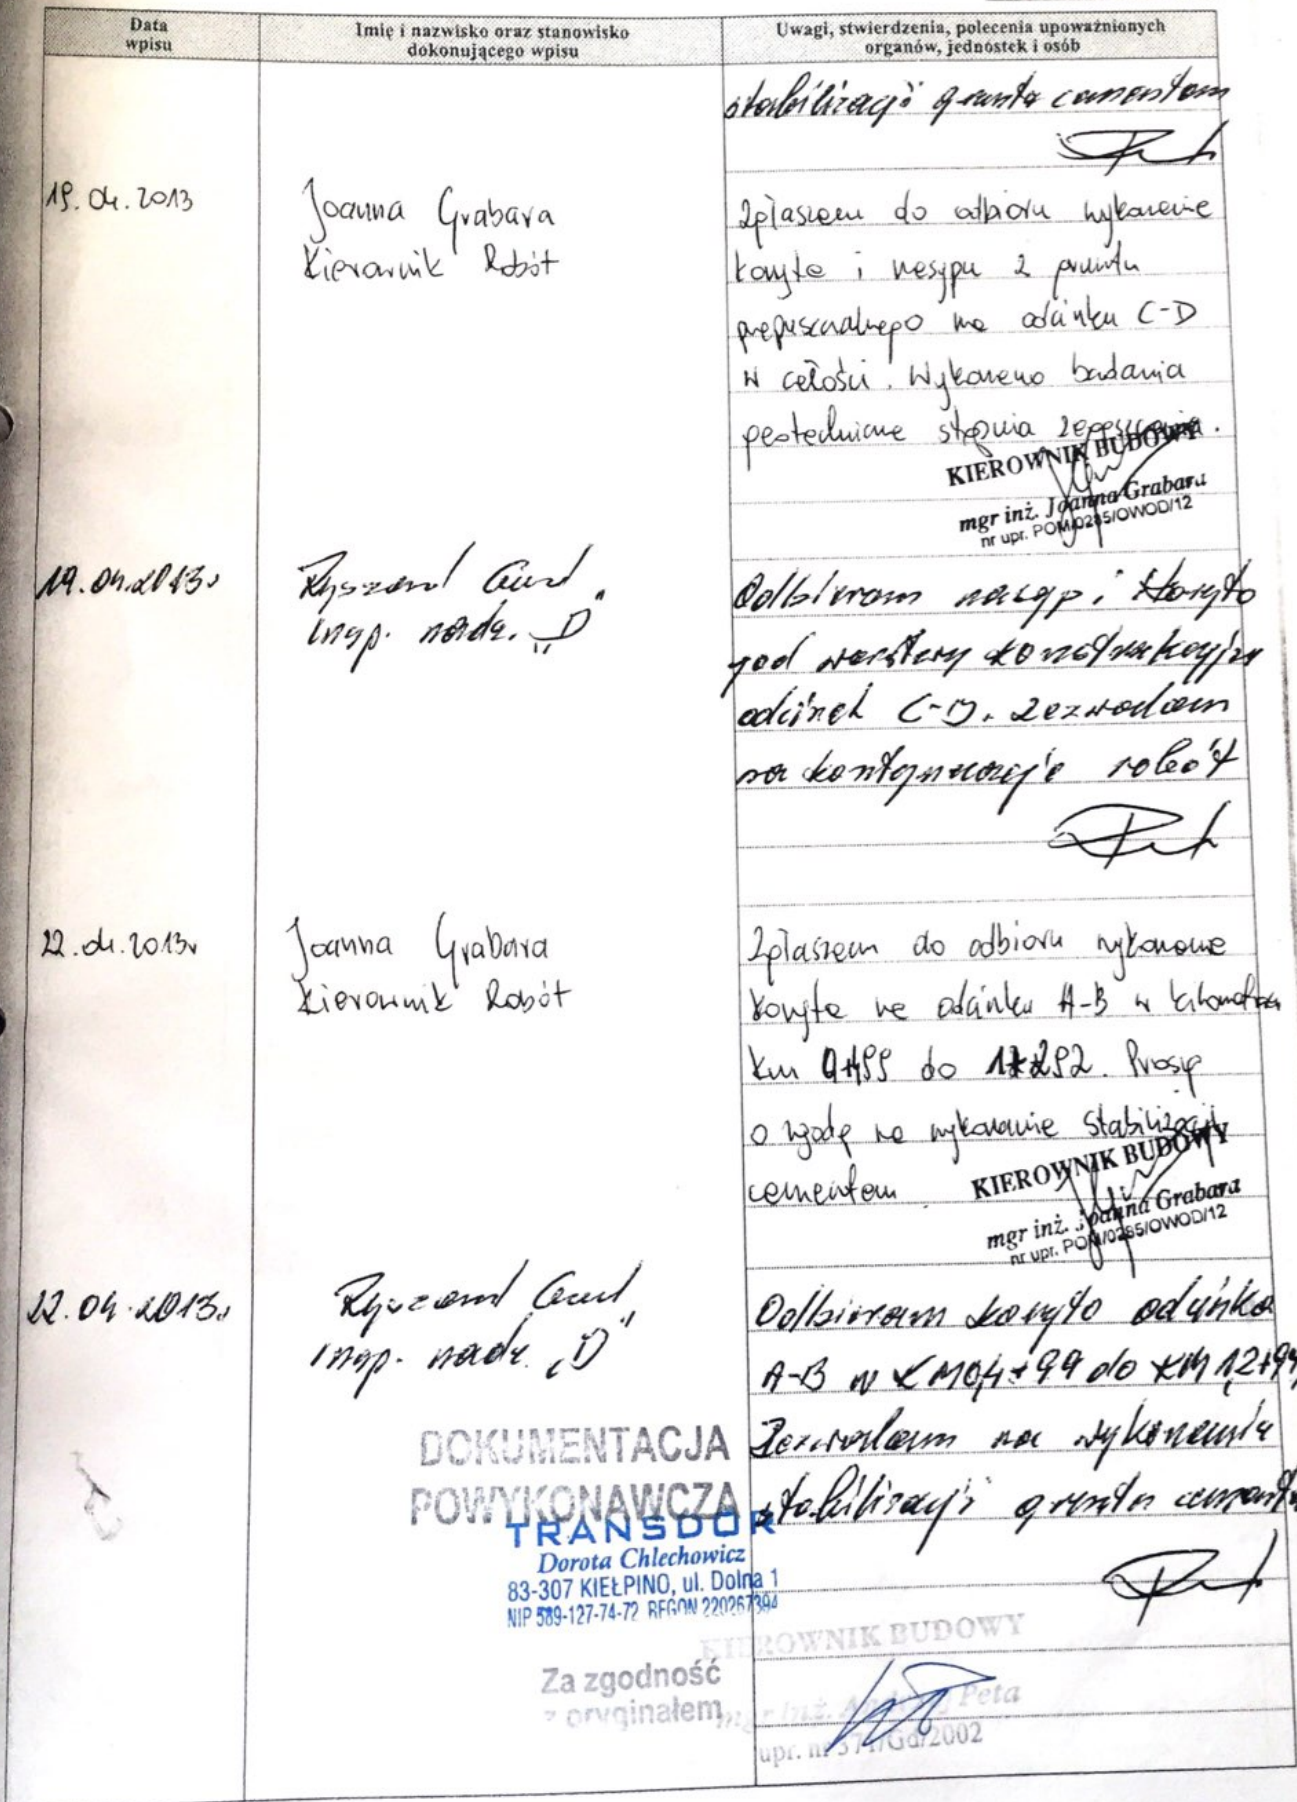 Data
wpisu
Imię i nazwisko oraz stanowisko
dokonującego wpisu
Uwagi, stwierdzenia, polecenia upoważnionych
organów, jednostek i osób
stabilizacji gruntu cementem
19.04.2013
Joanna Grabara
Kierownik Robót
Zgłaszam do odbioru wykonanie
koryta i nasypu z gruntu
przepuszczalnego na odcinku C-D
w całości. Wykonano badania
geotechniczne stopnia zagęszczenia.
KIEROWNIK BUDOWY
mgr inż. Joanna Grabara
nr upr. POM/0285/OWOD/12
19.04.2013r
Ryszard
insp. nadz. „D"
Odbieram nasyp i koryto
pod warstwy konstrukcyjne
odcinek C-D. Zezwalam
na kontynuację robót
22.04.2013r
Joanna Grabara
Kierownik Robót
Zgłaszam do odbioru wykonane
koryto na odcinku A-B w
km do Proszę
o zgodę na wykonanie stabilizacji
cementem
KIEROWNIK BUDOWY
mgr inż. Joanna Grabara
nr upr. POM/0285/OWOD/12
22.04.2013r
Ryszard
insp. nadz. „D"
Odbieram koryto odcinka
A-B w KM 0,4+99 do KM 1,2+9
Zezwalam na wykonanie
stabilizacji gruntu
DOKUMENTACJA
POWYKONAWCZA
TRANSDOR
Dorota Chlechowicz
83-307 KIEŁPINO, ul. Dolna 1
NIP 589-127-74-72 REGON 220267394
KIEROWNIK BUDOWY
Za zgodność
z oryginałem
mgr inż. Peta
upr. nr 371/Gd/2002